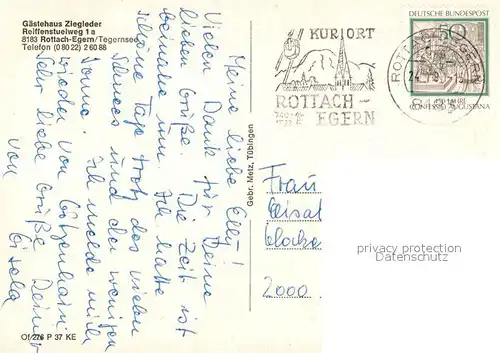 Gästehaus Ziegleder
Reiffenstuelweg 1 a
8183 Rottach-Egern/Tegernsee
Telefon (0 80 22) 2 60 88
Meine liebe Elly!
Vielen Dank für Deine
lieben Grüße. Die Zeit ist
beinahe um. Ich hatte
schöne Tage trotz des vielen
Schnees und der wenigen
Sonne. Ich melde mich
wieder von
Sehr liebe Grüße Deine
von Gisela
Of 276 P 37 KE
Gebr. Metz, Tübingen
KURORT
ROTTACH-
EGERN
ROTTACH-EGERN
8183
DEUTSCHE BUNDESPOST
50
CONFESSIO AUGUSTANA
Frau
2000
privacy protection
Datenschutz